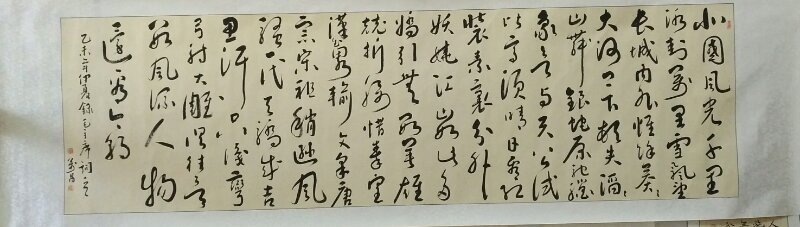 北國風光千里
冰封萬里雪飄望
長城内外惟餘莽々
大河上下頓失滔々
山舞銀蛇原馳蠟
象欲與天公試
比高須晴日看紅
裝素裹分外
妖嬈江山如此多
嬌引無數英雄
競折腰惜秦皇
漢武略輸文采唐
宗宋祖稍遜風
騷一代天驕成吉
思汗只識彎
弓射大雕俱往矣
數風流人物
還看今朝
乙未年仲夏錄毛主席詞